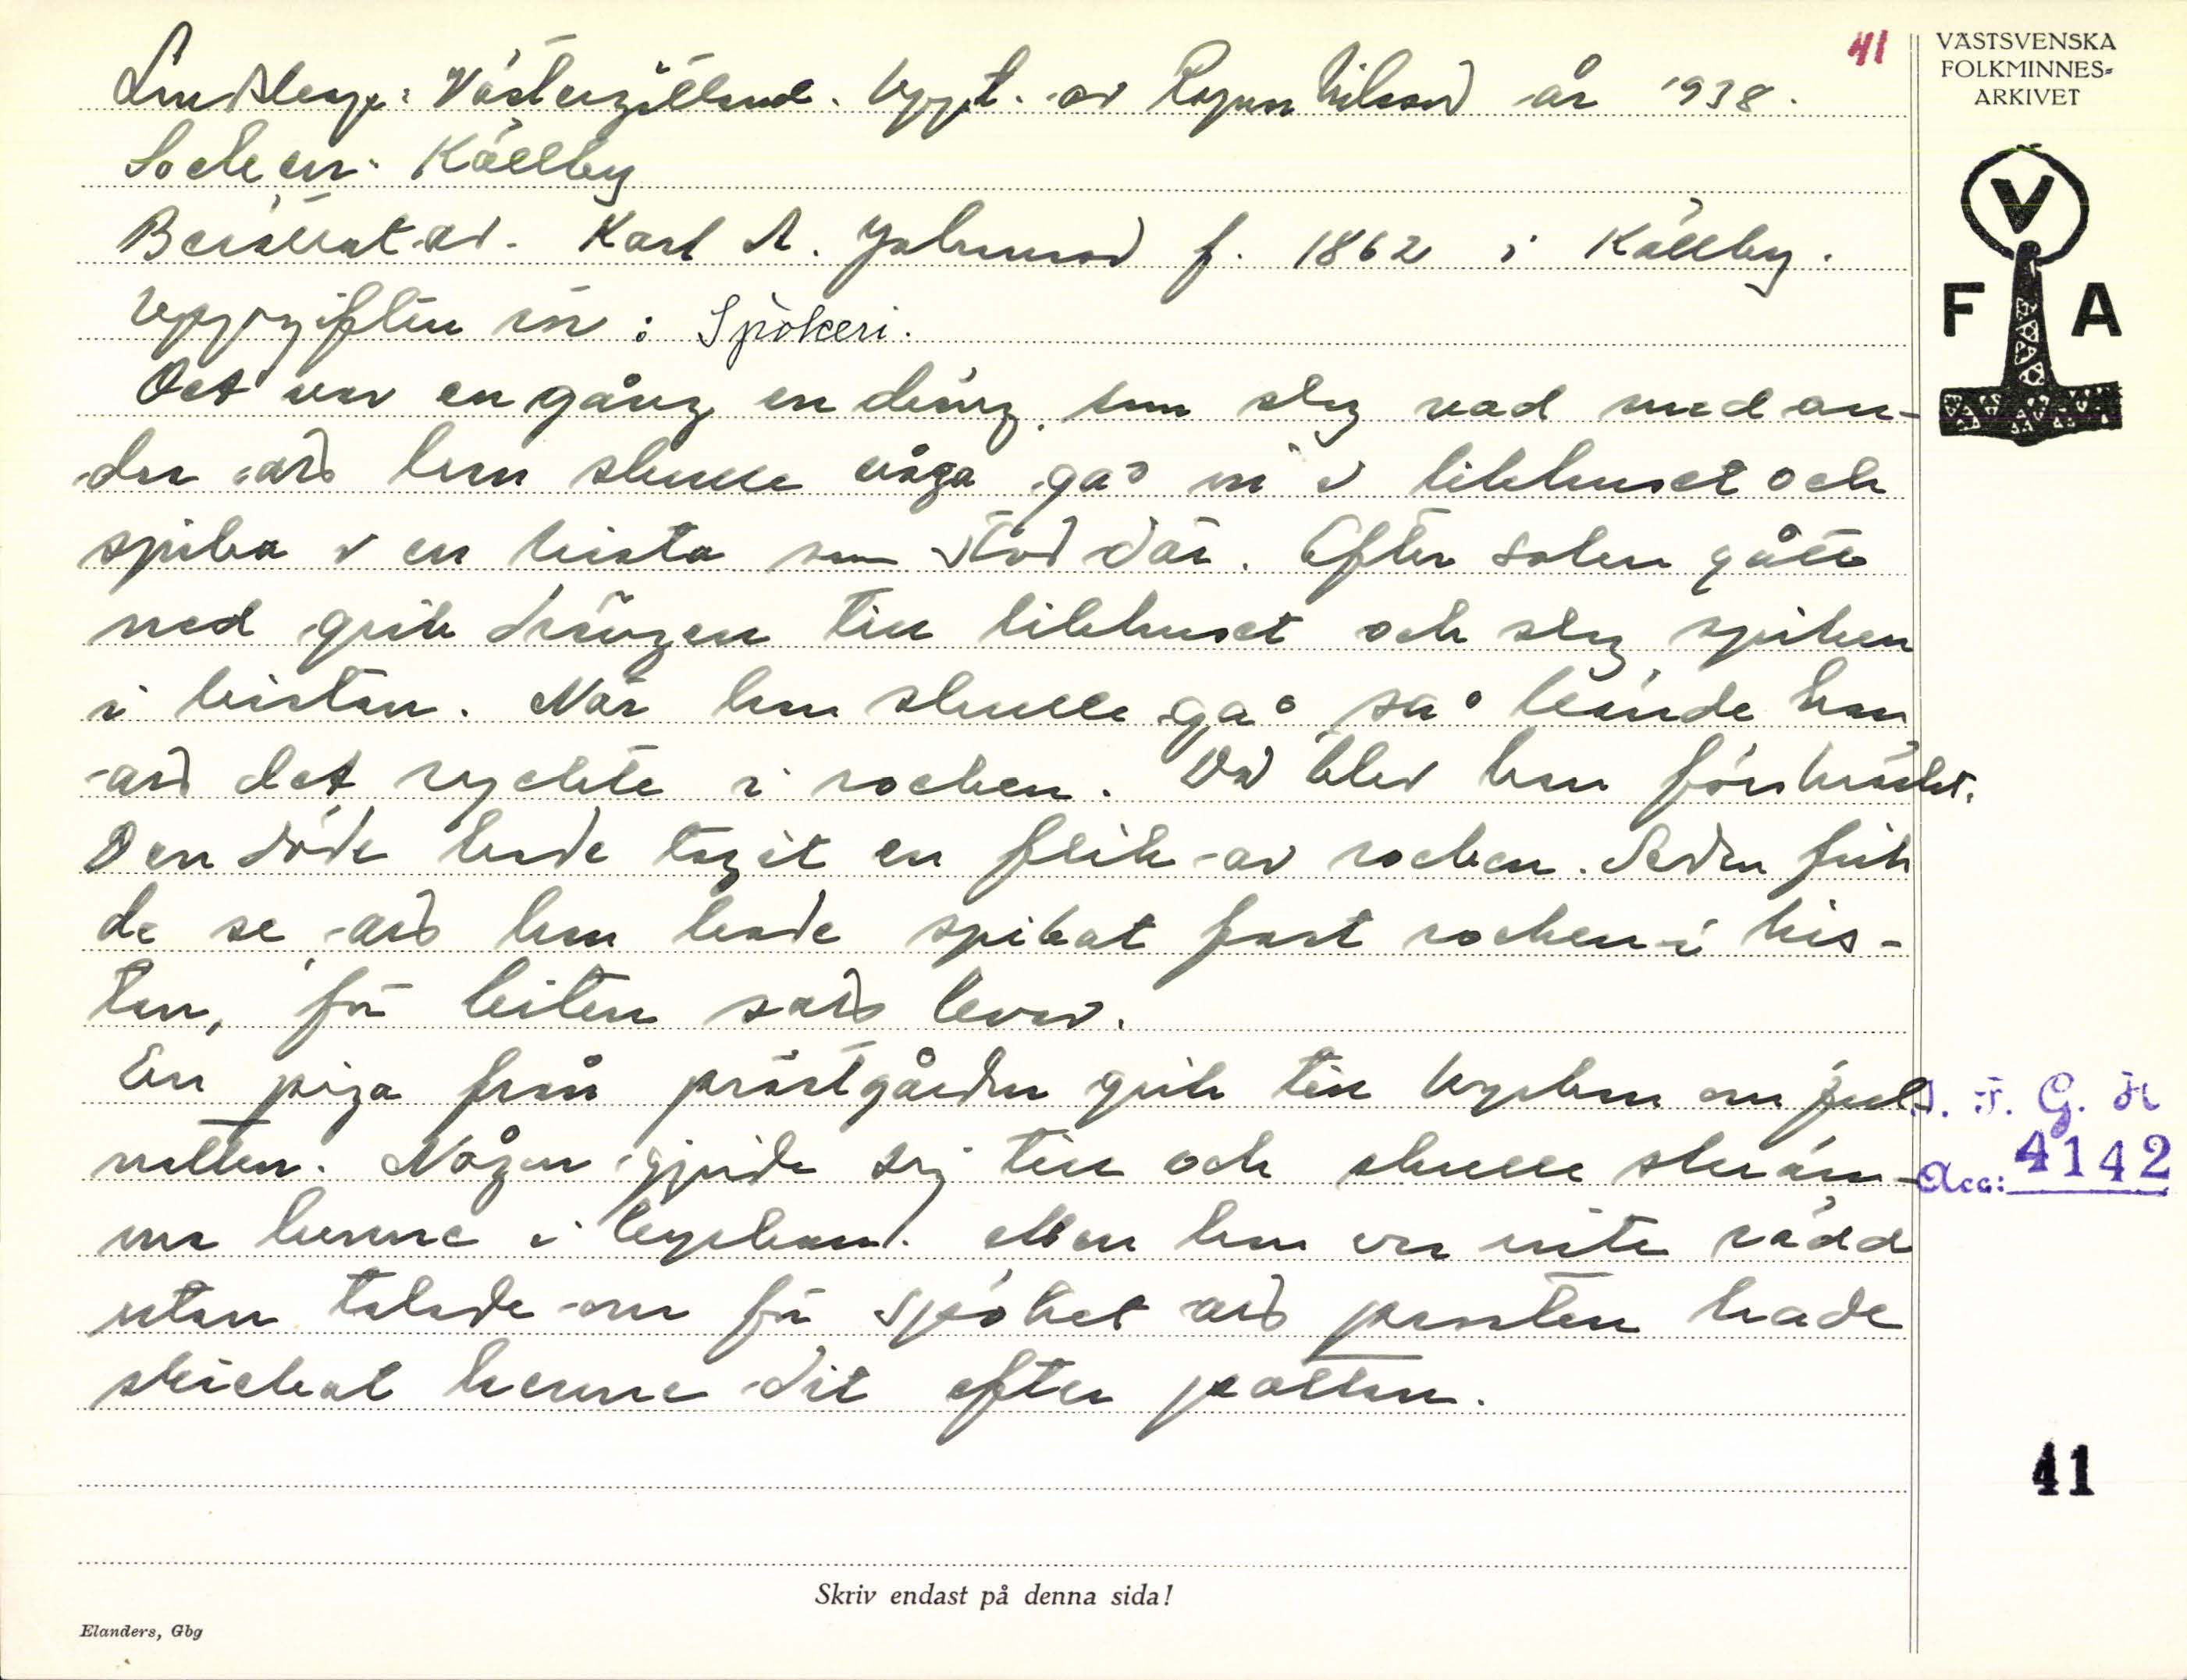 41
Landskap: Västergötland. Uppt. av Ragnar Nilsson år 1938.
Socken: Källby
Berättat av. Karl A. Johansson f. 1862 i Källby.
Uppgiften är: Spökeri.
Det var en gång en dräng, som slog vad med an-
dra att han skulle våga gå in i likhuset och
spika i en kista som stod där. Efter solen gått
ned gick drängen till likhuset och slog spiken
i kistan. När han skulle gå så kände han
att det ryckte i rocken. Då blev han förskräckt.
Den döde hade tagit en flik av rocken. Sedan fick
de se att han hade spikat fast rocken i kis-
tan, för biten satt kvar.
En piga från prästgården gick till kyrkan om jul-
natten. Någon gjorde sig till och skulle skräm-
ma henne i kyrkan. Men hon var inte rädd
utan talade om för spöket att prosten hade
skickat henne dit efter pottan.
VÄSTSVENSKA
FOLKMINNES-
ARKIVET
V
F A
I. F. G. H
Acc: 4142
41
Skriv endast på denna sida!
Elanders, Gbg